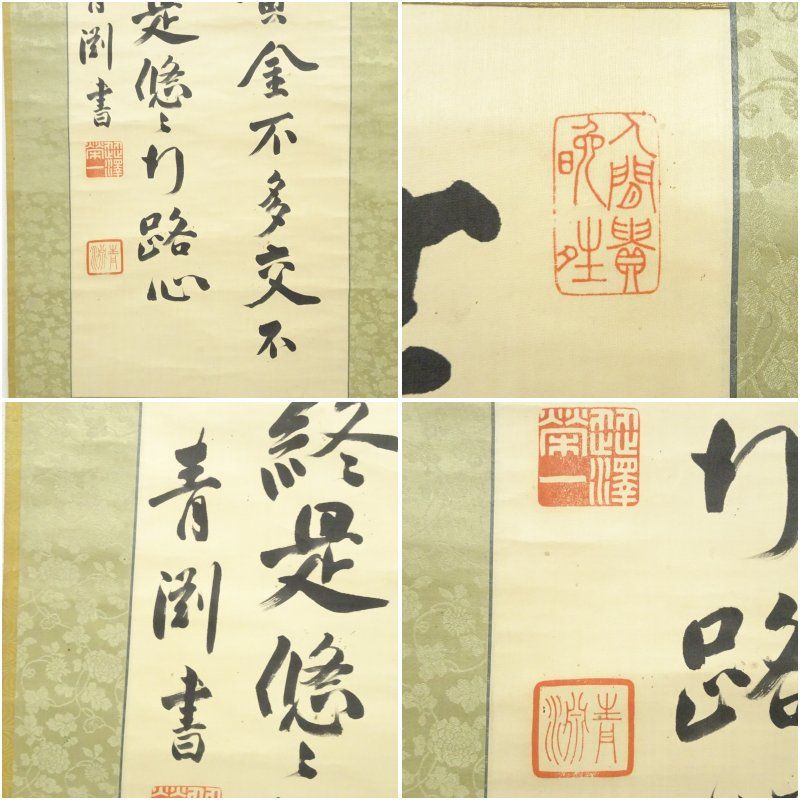 黄金不多交不
是悠〻行路心
青淵書
澁澤榮一
青淵
人間貴晩夝
終是悠〻
青淵書
行路
澁澤榮一
青淵